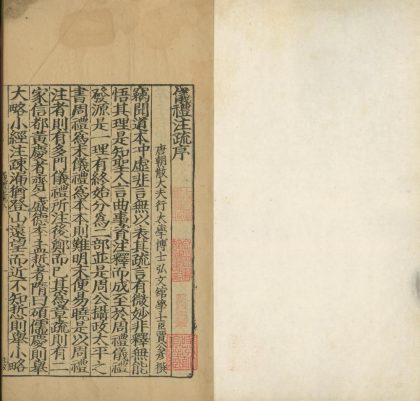 儀禮注疏序
唐朝散大夫行太學博士弘文館學士臣賈公彥撰
竊聞道本沖虛非言無以表其疏言有微妙非釋無能
悟其理是知聖人言曲事資注釋而成至於周禮儀禮
發源是一理有終始分爲二部並是周公攝政太平之
書周禮爲末儀禮爲本本則難明末便易曉是以周禮
注者則有多門儀禮所注後鄭而已其爲章疏則有二
家信都黃慶者齊之盛德李孟悊者隋曰碩儒慶則舉
大略小經注疎漏猶登山遠望而近不知悊則舉小略